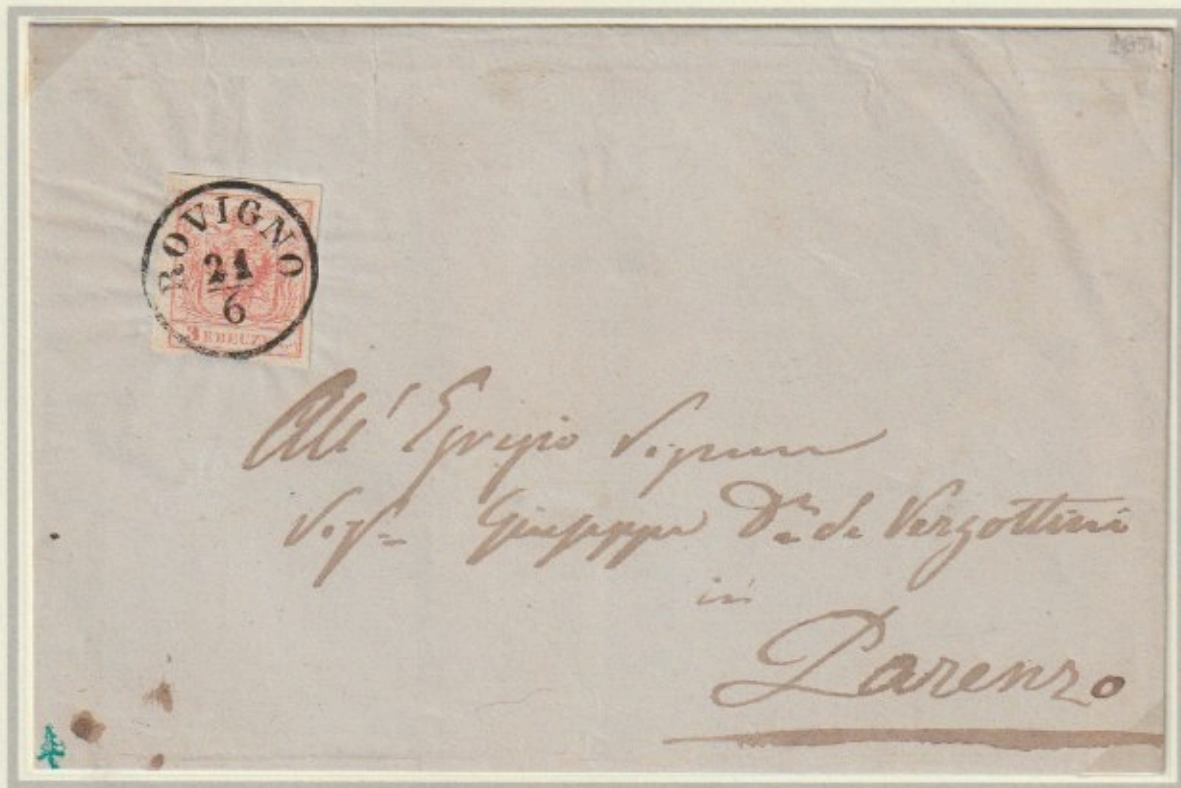 ROVIGNO
21
6
3 KREUZ
All' Egregio Signore
Sig.r Giuseppe D.r de Vergottini
in
Parenzo